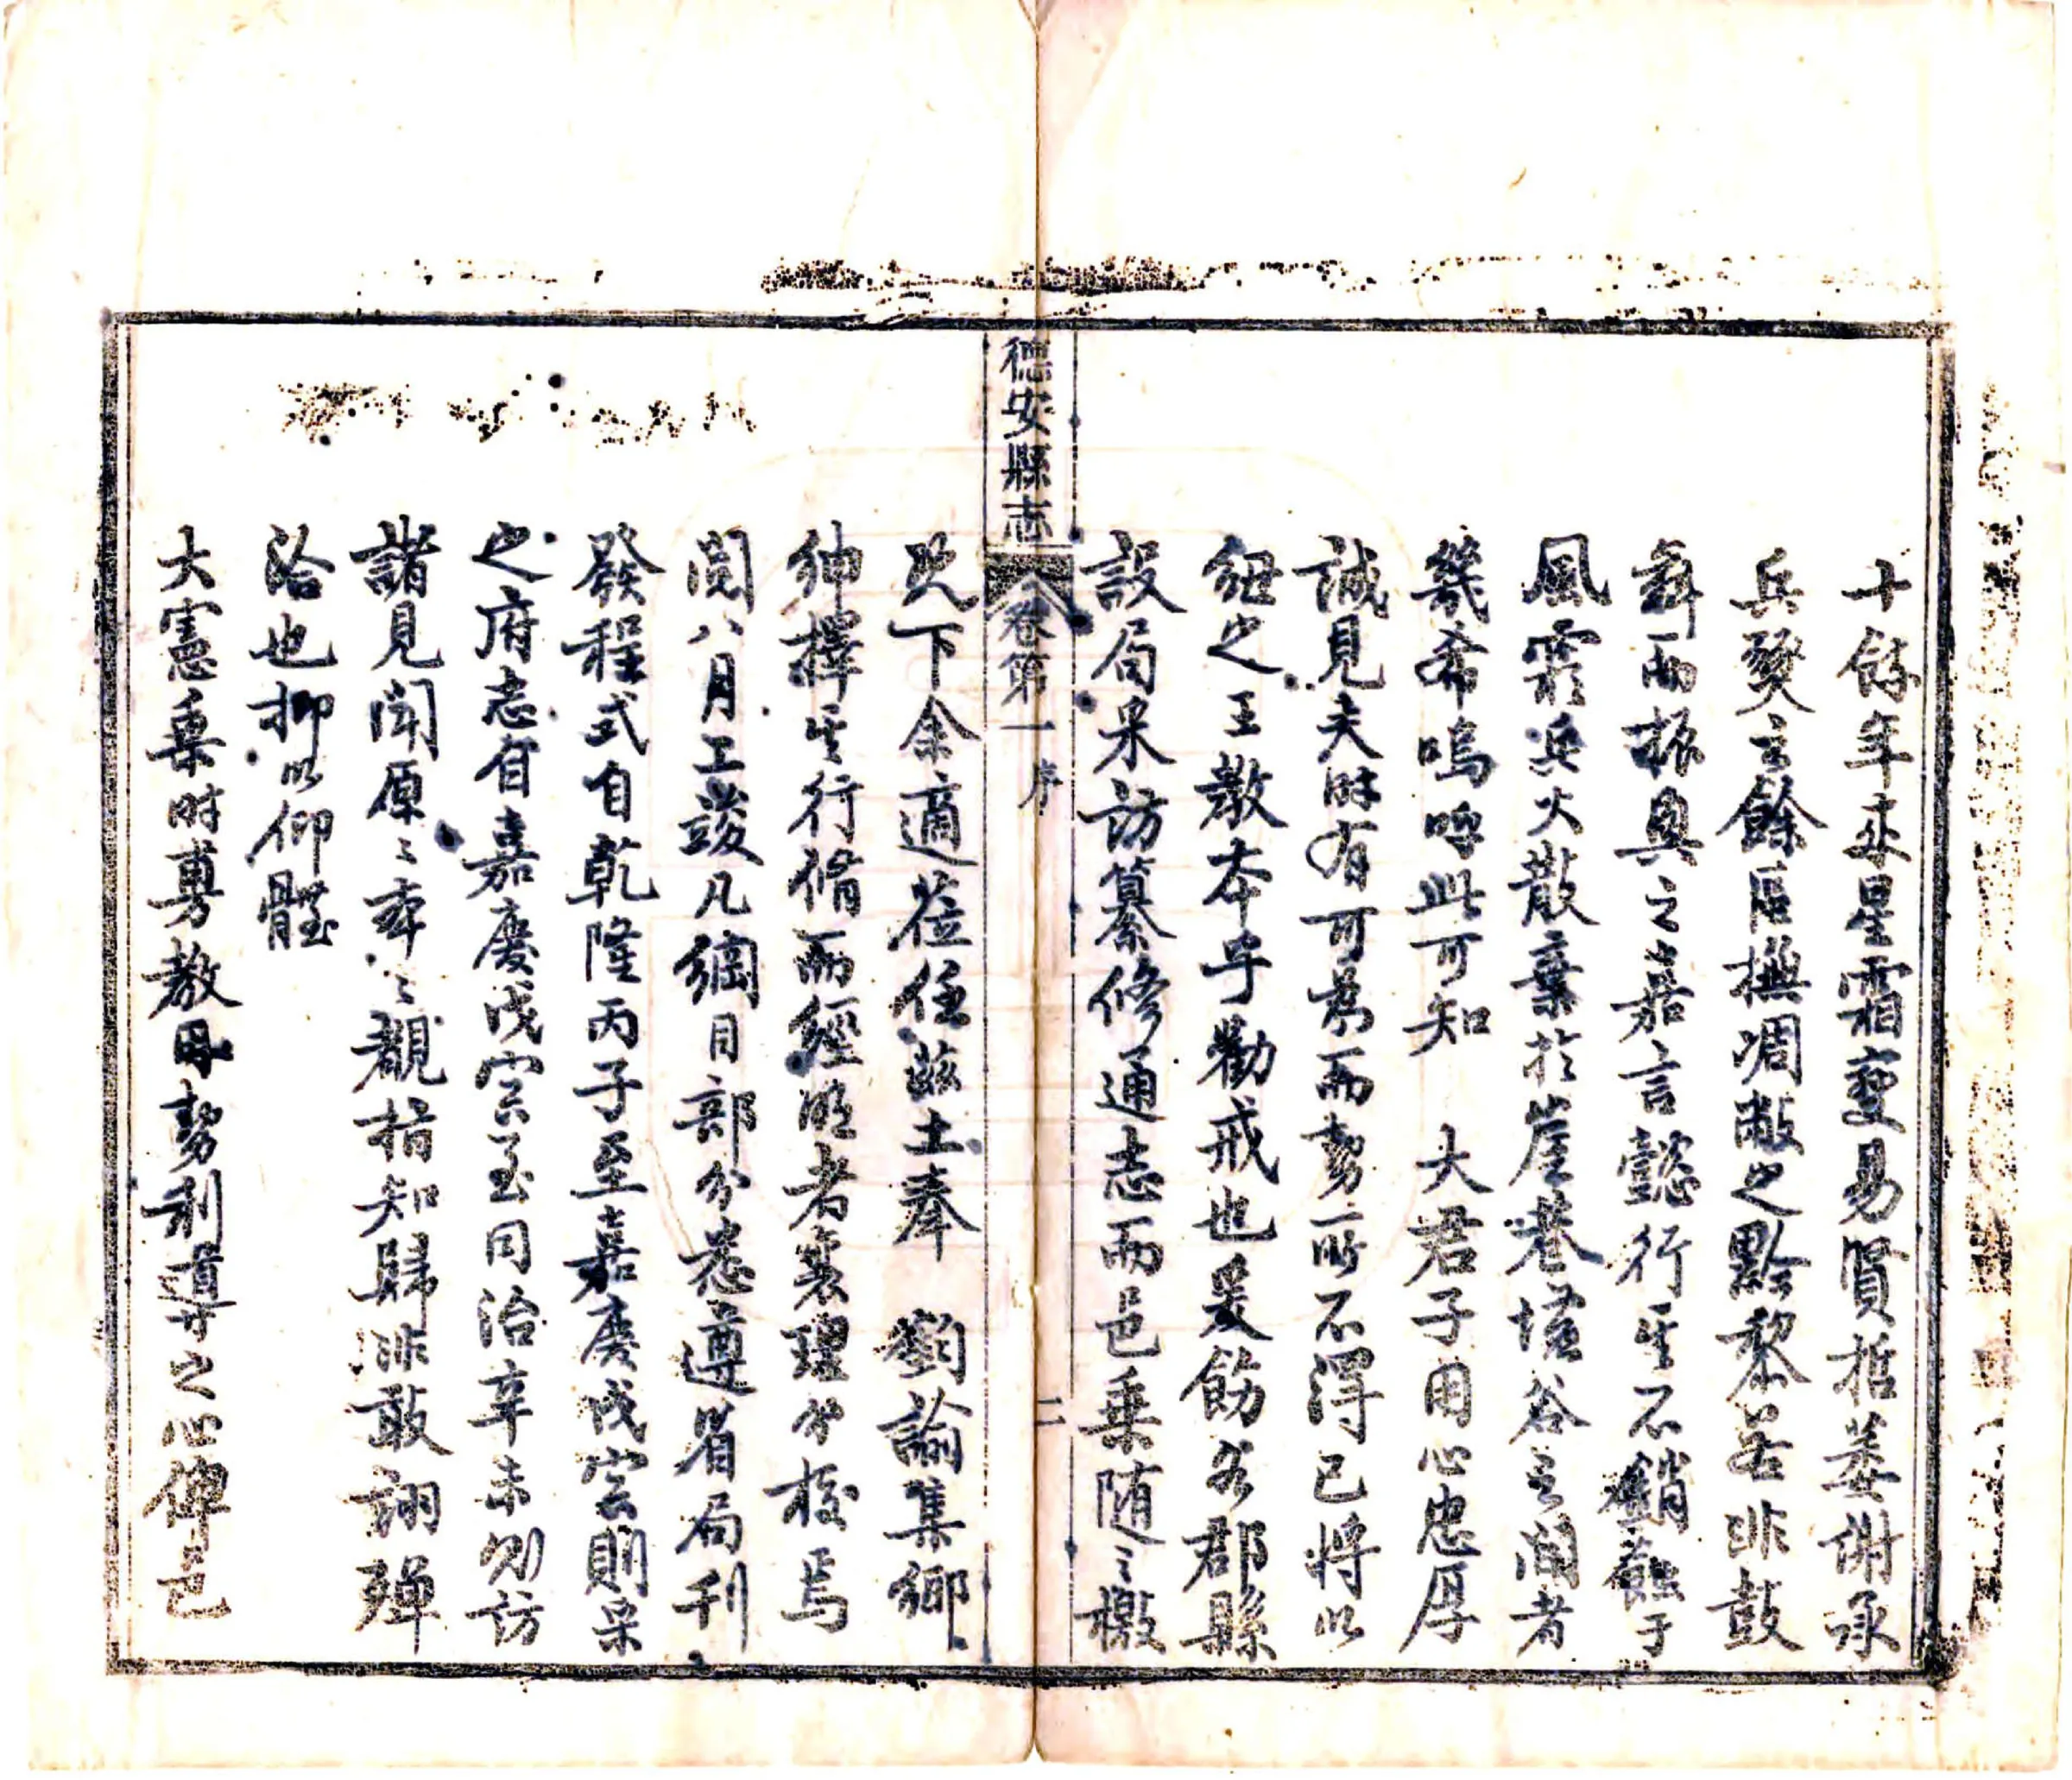 十餘年來星霜變易賢哲萎謝承
兵燹之餘區撫凋敝之黔黎若非鼓
舞而振興之嘉言懿行其不銷蝕于
風霜兵火散棄於崖巷墟谷之間者
幾希嗚呼此可知 大君子用心忠厚
誠見夫時有可為而勢所不得已將以
細之王教本乎勸戒也爰飭各郡縣
設局采訪纂修通志而邑乘随之檄
德安縣志
卷第一 序
二
既下余適蒞任茲土奉 劄諭集鄉
紳擇其行脩而經明者襄理分校焉
閱八月工竣凡綱目部分悉遵省局刊
發程式自乾隆丙子至嘉慶戊寅則采
之府志自嘉慶戊寅至同治辛未則访
諸見聞原之牽之覼指知歸非敢詡殫
洽也抑以仰體
大憲乗時尃教因勢利導之心俾邑